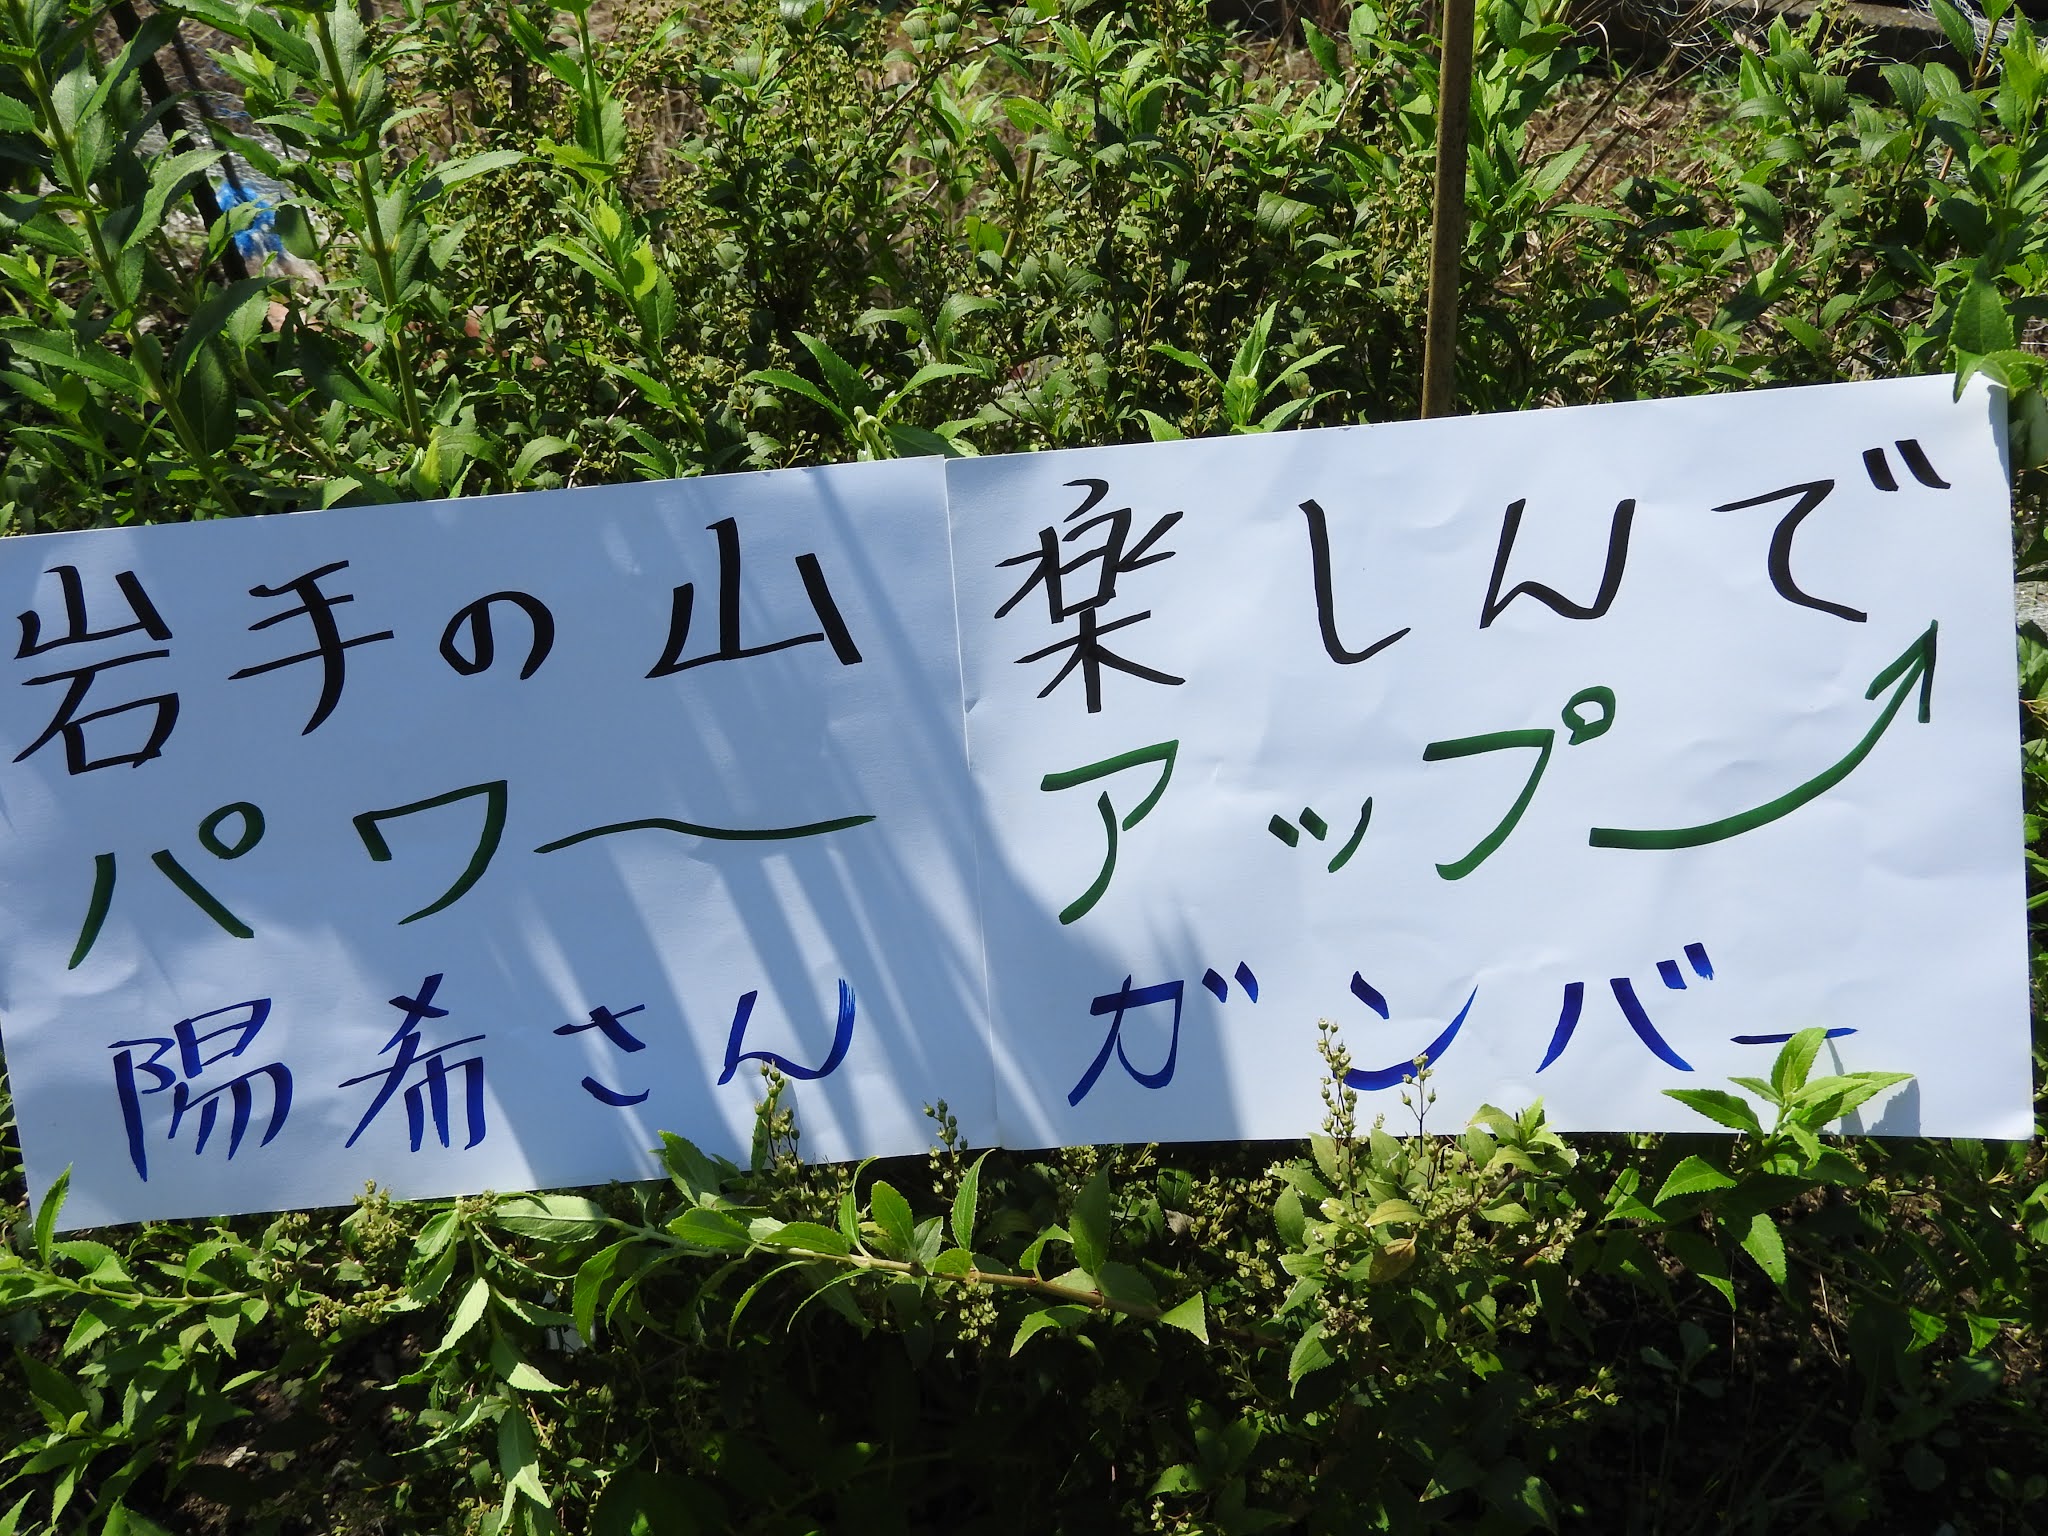 岩手の山 楽しんで
パワー アップ⤴
陽希さん ガンバー